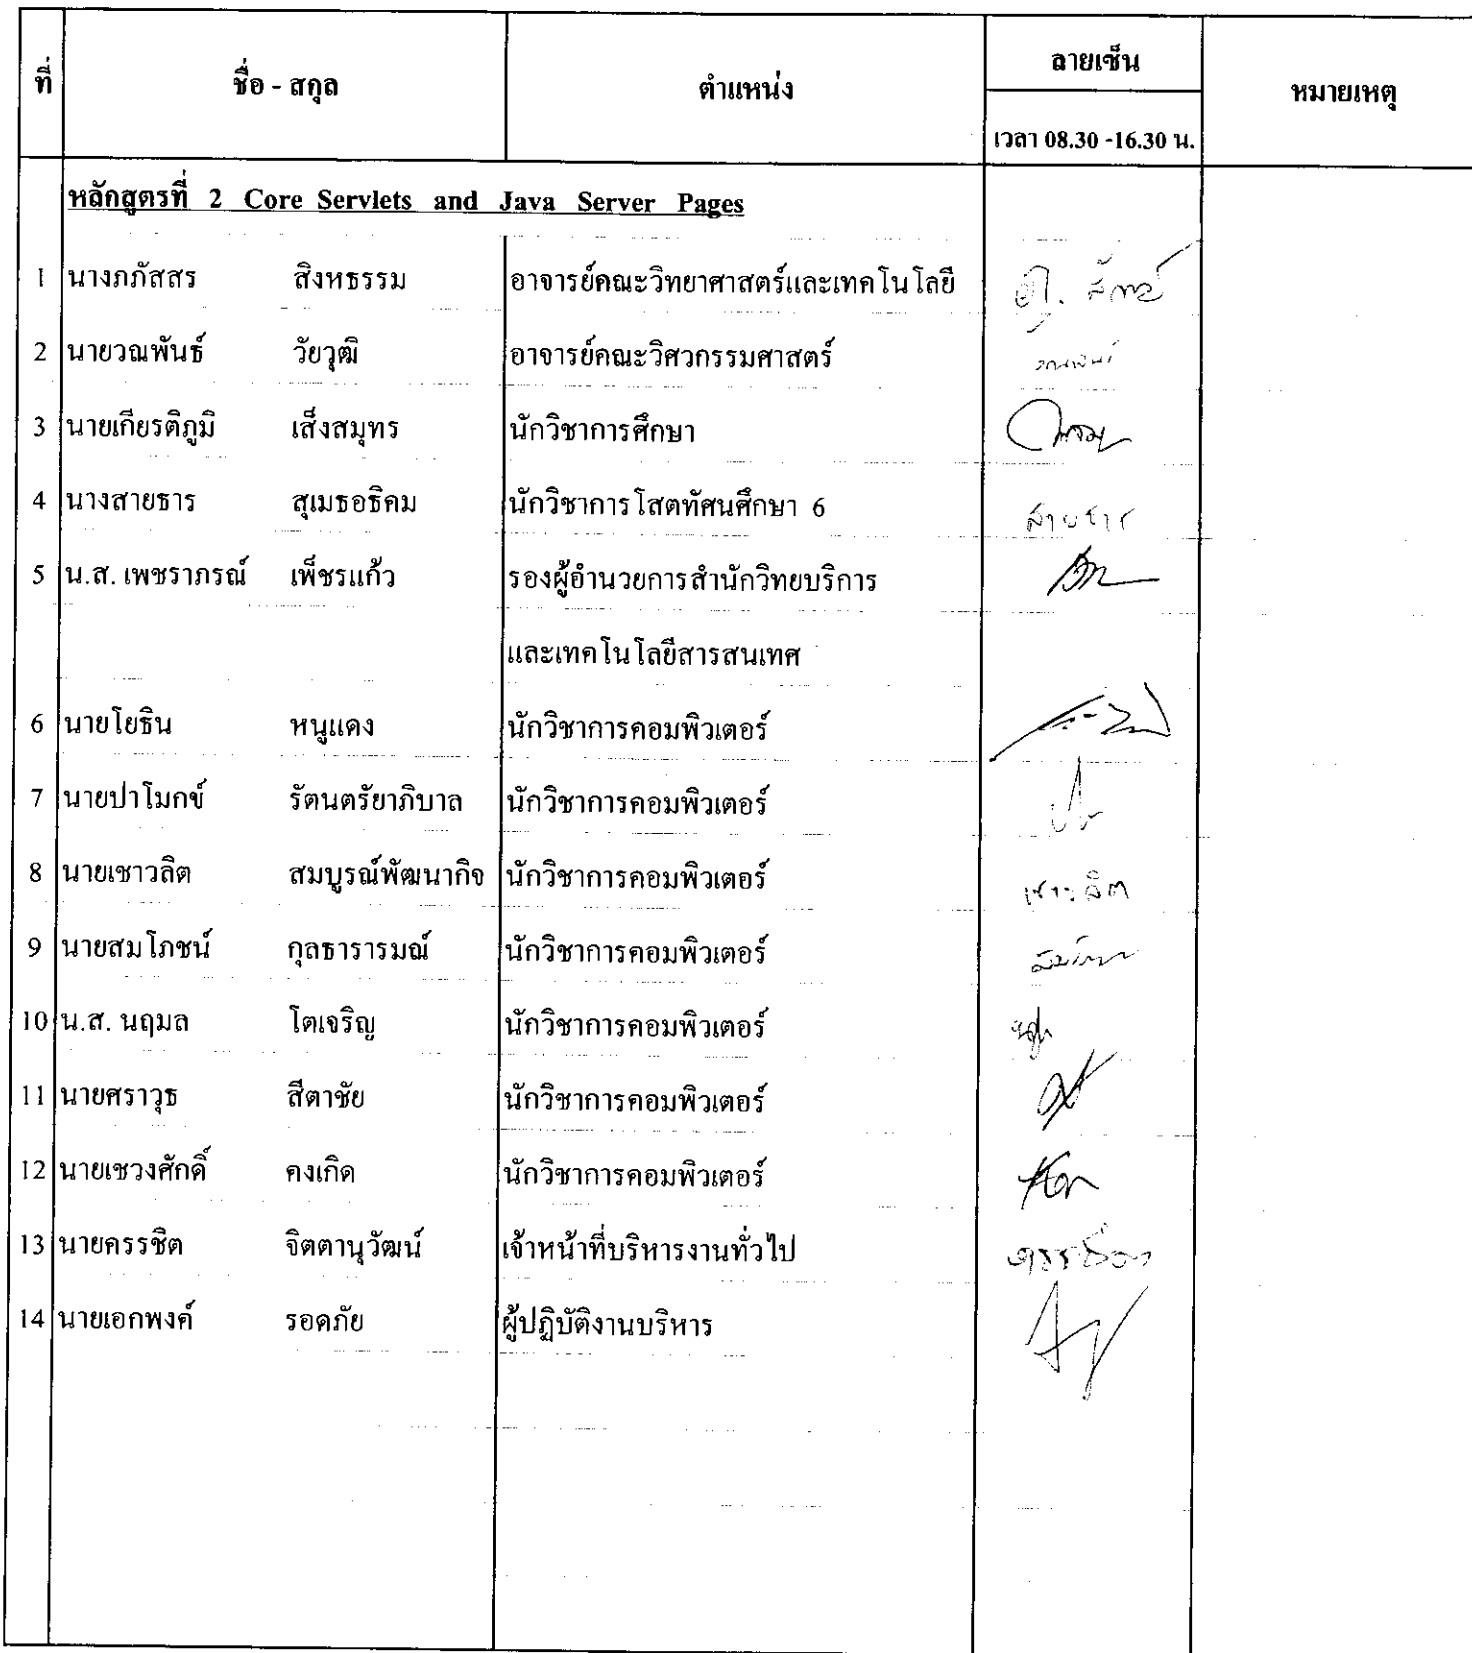 ที่ ชื่อ - สกุล ตำแหน่ง ลายเซ็น หมายเหตุ
เวลา 08.30 -16.30 น.
หลักสูตรที่ 2 Core Servlets and Java Server Pages
1 นางภภัสสร สิงหธรรม อาจารย์คณะวิทยาศาสตร์และเทคโนโลยี
2 นายวณพันธ์ วัยวุฒิ อาจารย์คณะวิศวกรรมศาสตร์ วณพันธ์
3 นายเกียรติภูมิ เส็งสมุทร นักวิชาการศึกษา
4 นางสายธาร สุเมธอธิคม นักวิชาการโสตทัศนศึกษา 6 สายธาร
5 น.ส. เพชราภรณ์ เพ็ชรแก้ว รองผู้อำนวยการสำนักวิทยบริการ
และเทคโนโลยีสารสนเทศ
6 นายโยธิน หนูแดง นักวิชาการคอมพิวเตอร์
7 นายปาโมกข์ รัตนตรัยาภิบาล นักวิชาการคอมพิวเตอร์
8 นายเชาวลิต สมบูรณ์พัฒนากิจ นักวิชาการคอมพิวเตอร์ เชาวลิต
9 นายสมโภชน์ กุลธารารมณ์ นักวิชาการคอมพิวเตอร์
10 น.ส. นฤมล โตเจริญ นักวิชาการคอมพิวเตอร์
11 นายศราวุธ สีตาชัย นักวิชาการคอมพิวเตอร์
12 นายเชวงศักดิ์ คงเกิด นักวิชาการคอมพิวเตอร์
13 นายครรชิต จิตตานุวัฒน์ เจ้าหน้าที่บริหารงานทั่วไป
14 นายเอกพงค์ รอดภัย ผู้ปฏิบัติงานบริหาร